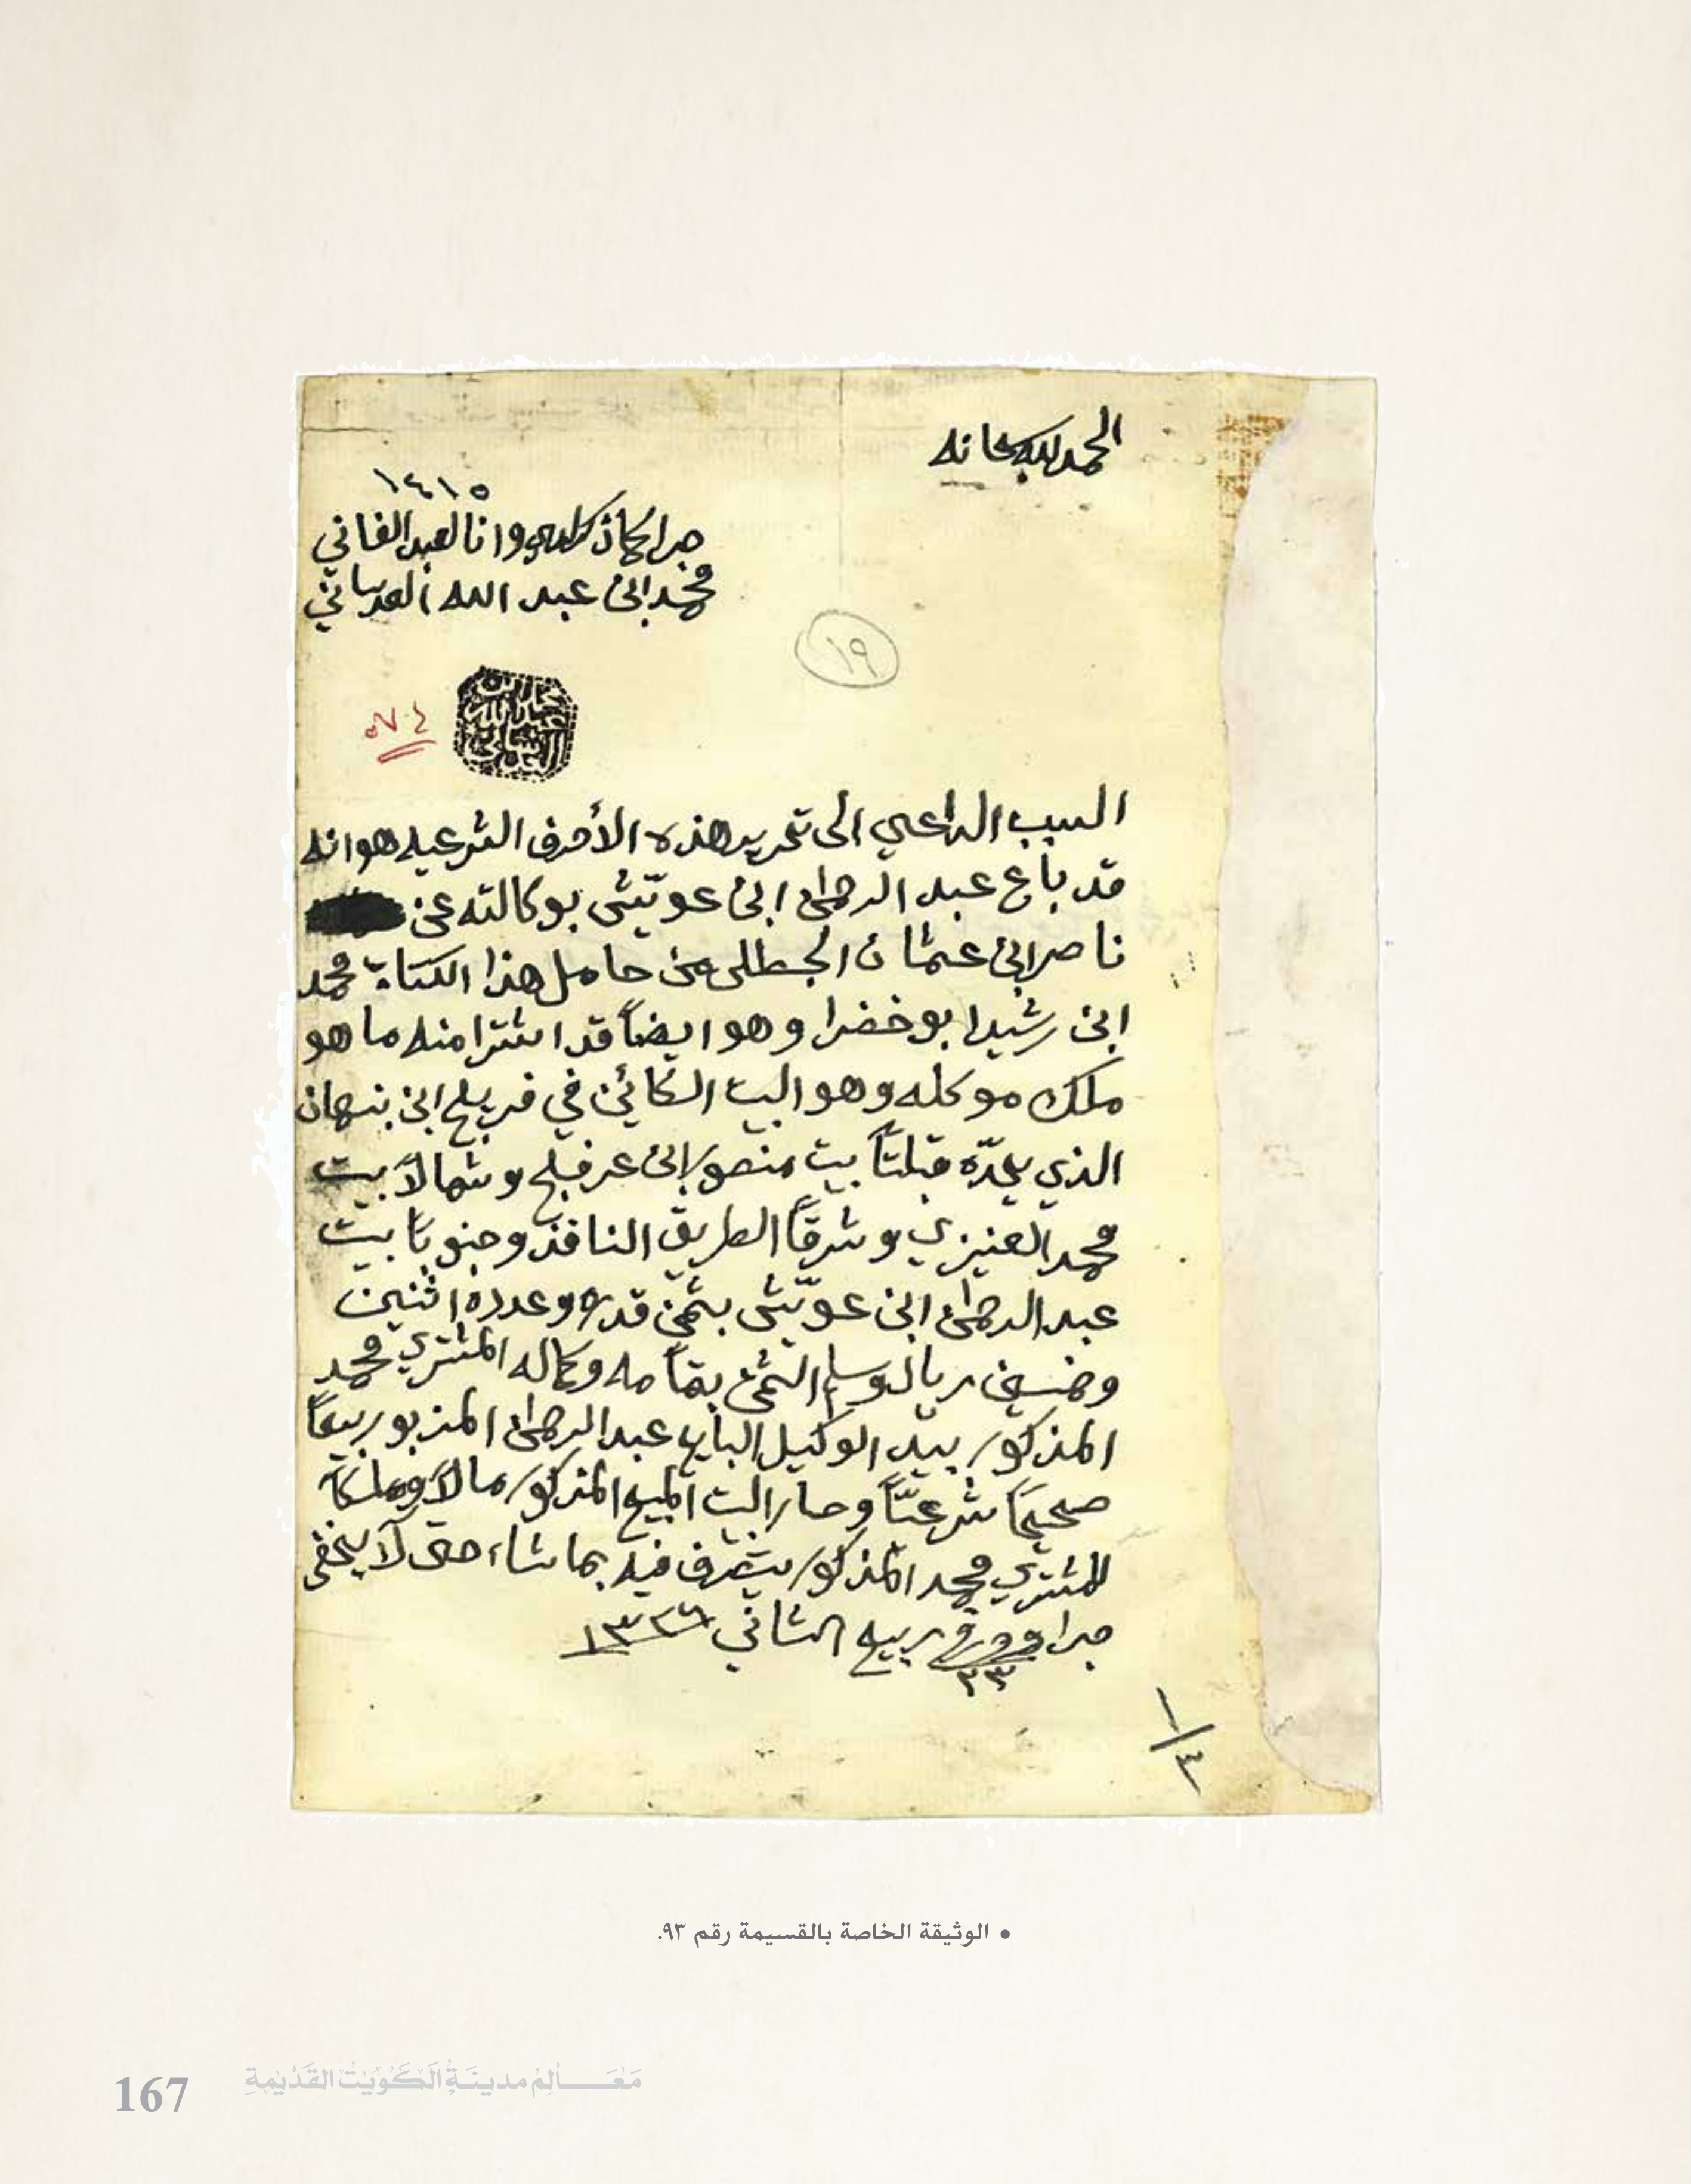 الحمد لله سبحانه
١٤١٥
جرا كما ذكر لدي وانا العبد الفاني
محمد ابن عبد الله العدساني
١٩
محمد ابن
عبد الله
العدساني
٥٧٤
السبب الداعي الى تحرير هذه الأحرف الشرعيه هو انه
قد باع عبد الرحمن ابن عويّش بوكالته عن
ناصر ابن عثمان الجطلى من حامل هذا الكتاب محمد
ابن رشيد ابو خضرا وهو ايضاً قد اشترا منه ما هو
ملك موكله وهو البيت الكائن في فريج ابن نبهان
الذي يحدّه قبلتاً بيت منصور ابن عرفج وشمالاً بيت
محمد العنيزي وشرقاً الطريق النافذ وجنوباً بيت
عبد الرحمن ابن عويّش بثمن قدره وعدده اثنين
وخمسين ريال وسلم الثمن بتمامه وكماله المشتري محمد
المذكور بيد الوكيل البايع عبد الرحمن المزبور بيعاً
صحيحاً شرعيّاً وصار البيت المبيع المذكور مالاً وملكاً
للمشتري محمد المذكور يتصرف فيه بما شاء حتى لا يخفى
جرا وحرر في ربيع الثاني ١٣٣٦
٢٣
١/٤
• الوثيقة الخاصة بالقسيمة رقم ٩٣.
167 مَعَالِم مدينَة الكُوَيت القَدْيمةِ